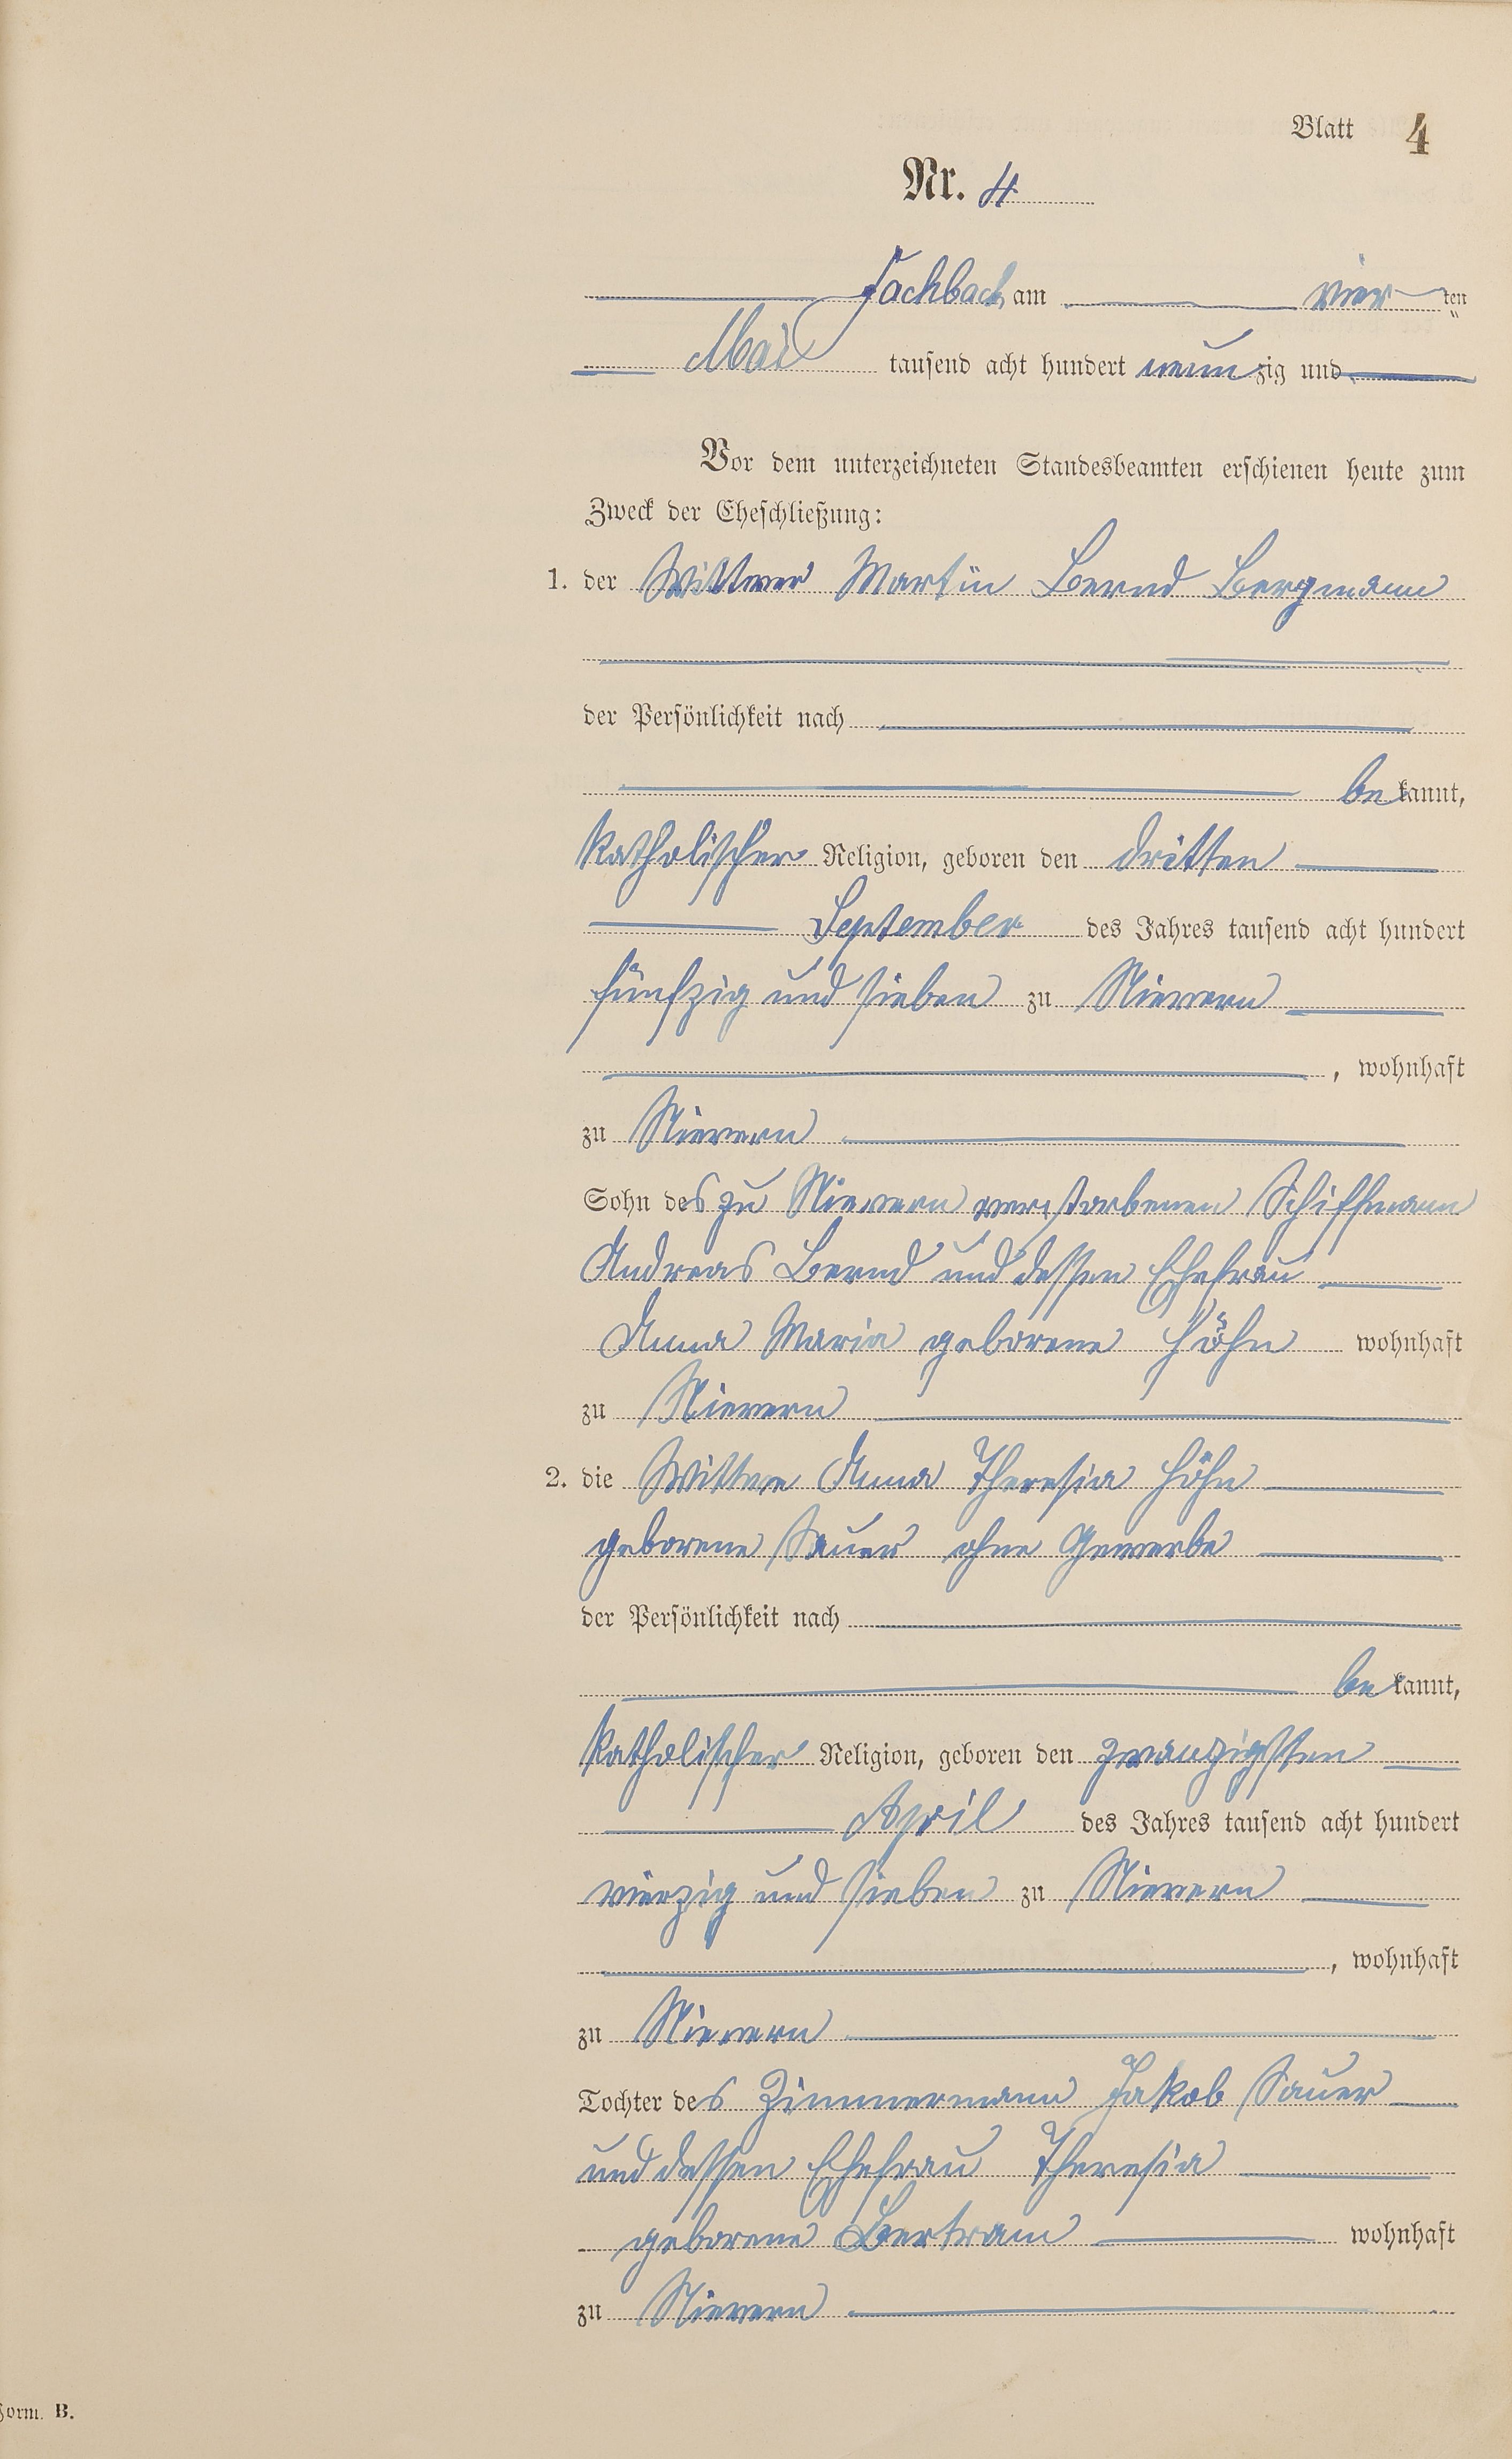 Blatt 4
Nr. 4
Fachbach am vier ten
Mai tausend acht hundert neunzig und
Vor dem unterzeichneten Standesbeamten erschienen heute zum
Zweck der Eheschließung:
1. der Wittwer Martin Bernd Bergmann
der Persönlichkeit nach
be kannt,
katholischer Religion, geboren den dritten
September des Jahres tausend acht hundert
fünfzig und sieben zu Nievern
, wohnhaft
zu Nievern
Sohn des zu Nievern verstorbenen Schiffmann
Andreas Bernd und dessen Ehefrau
Anna Maria geborene Höhn wohnhaft
zu Nievern
2. die Wittwe Anna Theresia Höhn
geborene Sauer ohne Gewerbe
der Persönlichkeit nach
be kannt,
katholischer Religion, geboren den zwanzigsten
April des Jahres tausend acht hundert
vierzig und sieben zu Nievern
, wohnhaft
zu Nievern
Tochter des Zimmermann Jakob Sauer
und dessen Ehefrau Theresia
geborene Bertram wohnhaft
zu Nievern
Form. B.